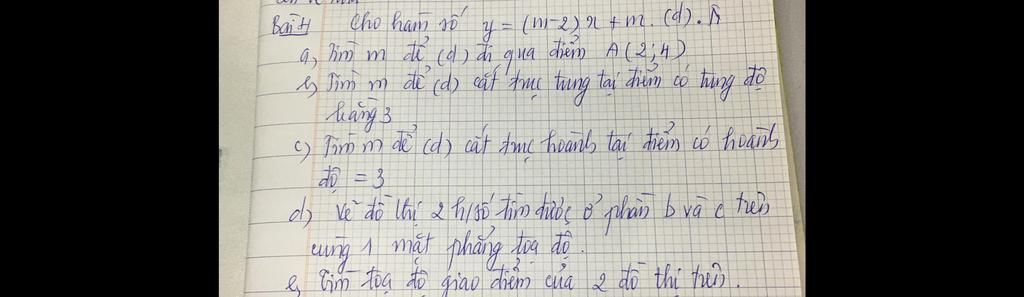 Bài 4 Cho hàm số y = (m-2)x + m. (d).
a, Tìm m để (d) đi qua điểm A(2;4)
b, Tìm m để (d) cắt trục tung tại điểm có tung độ
bằng 3
c) Tìm m để (d) cắt trục hoành tại điểm có hoành
độ = 3
d) Vẽ đồ thị 2 h/số tìm được ở phần b và c trên
cùng 1 mặt phẳng toạ độ.
e, Tìm toạ độ giao điểm của 2 đồ thị trên.